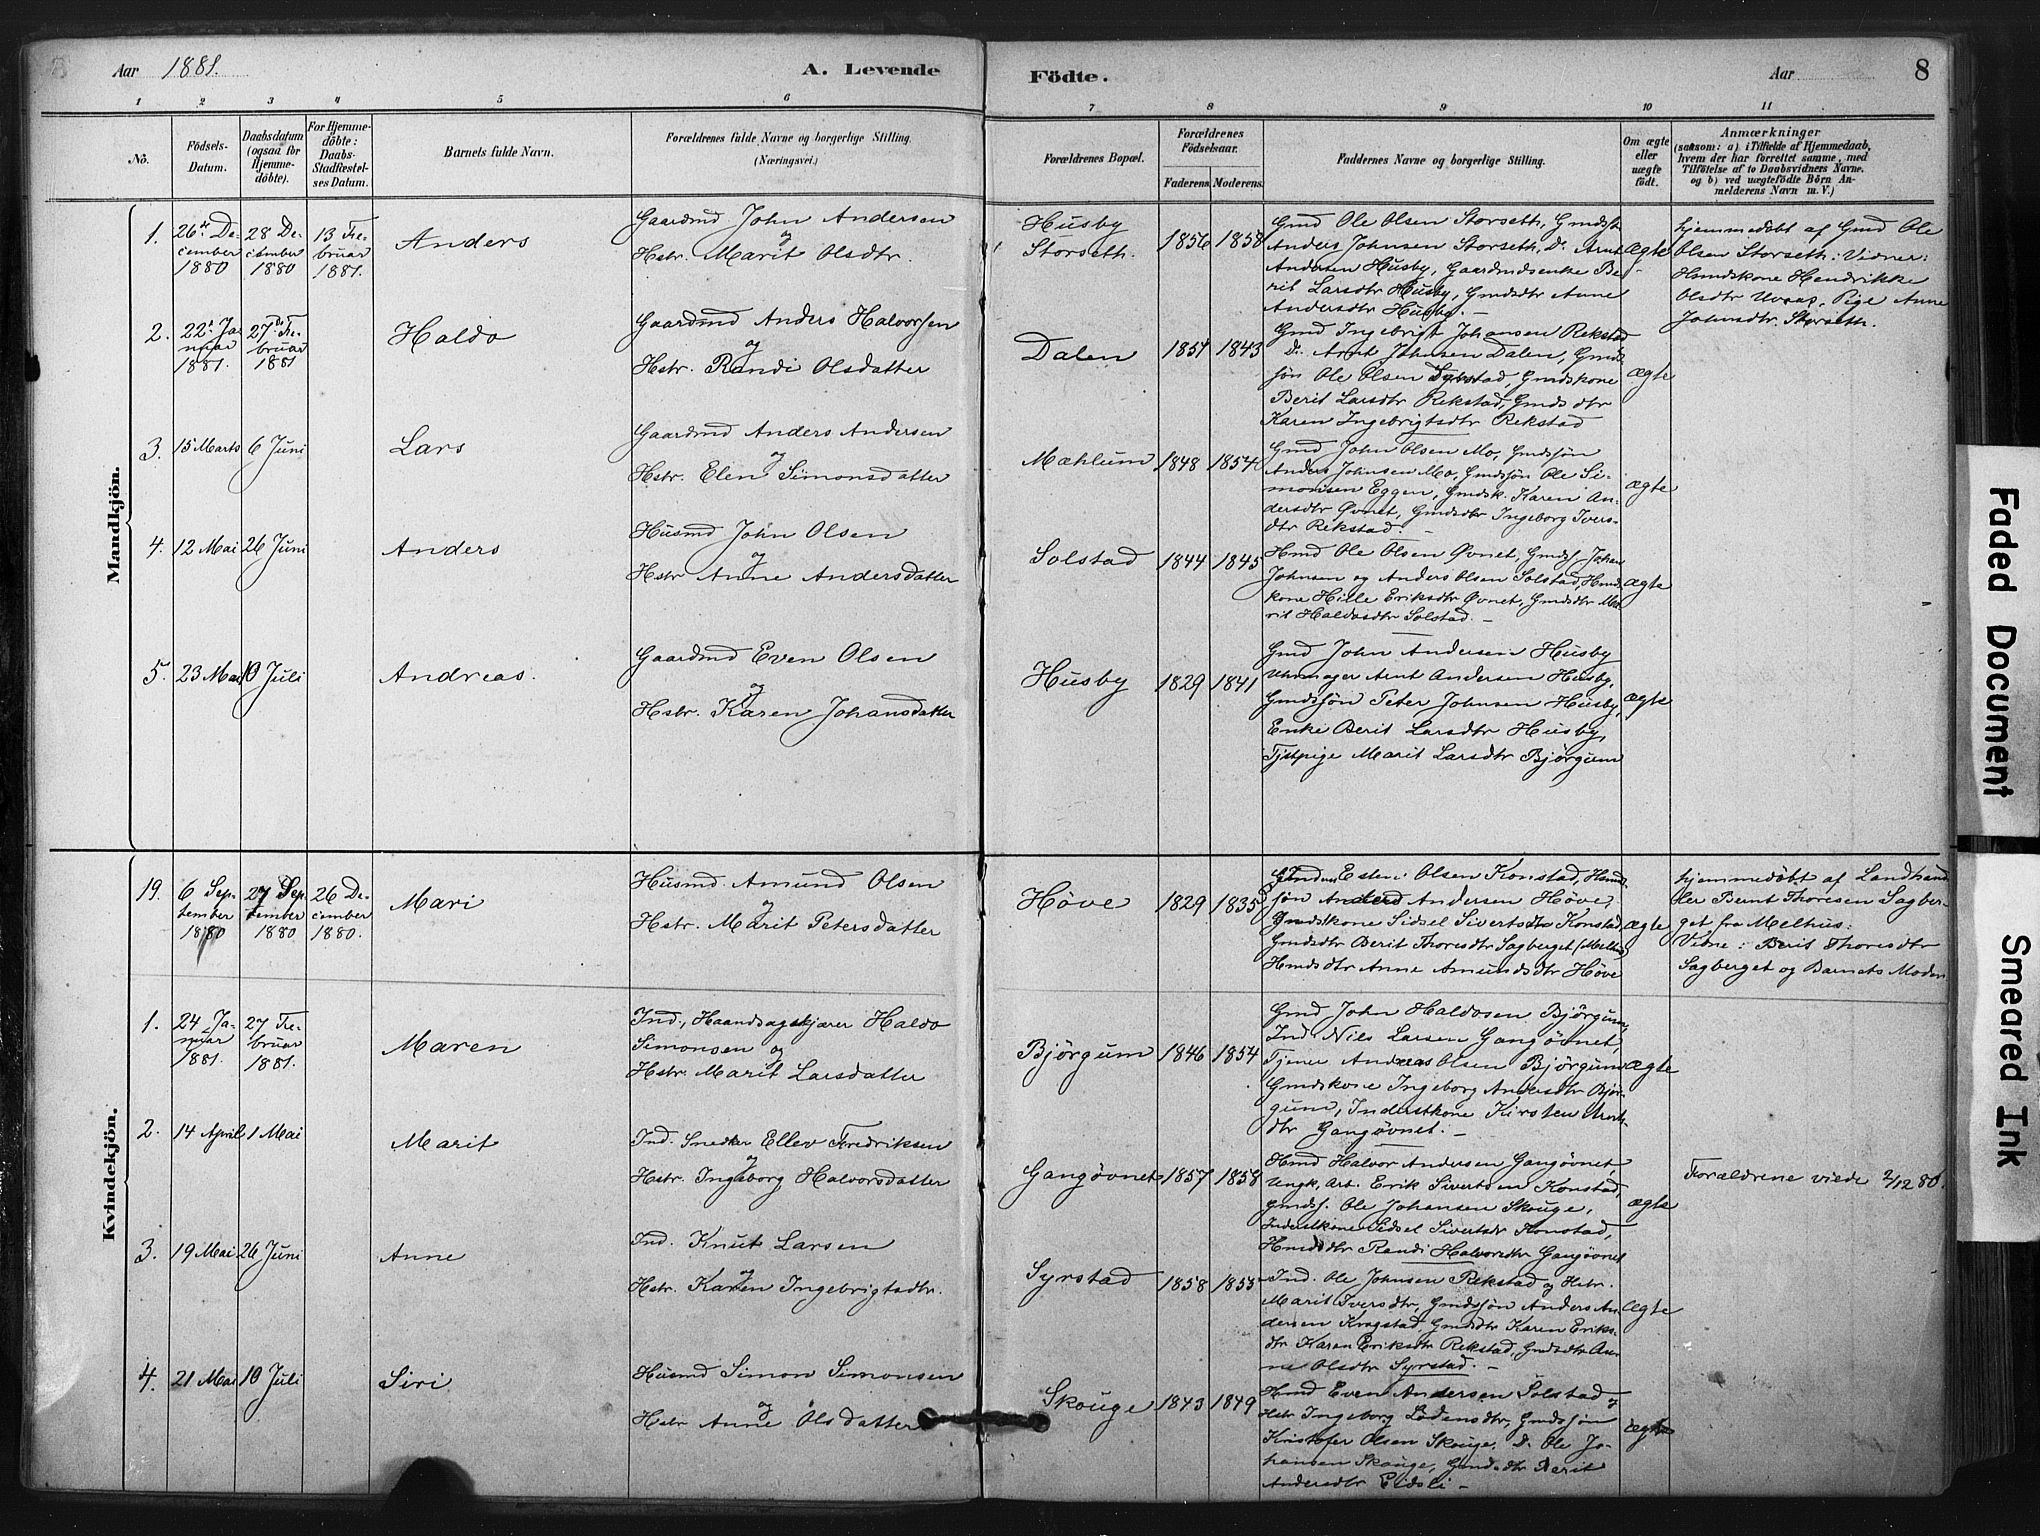 Aar 1881.
A. Levende
Födte.
Aar
8
1 2 3 4 5 6 7 8 9 10 11
No.
Födsels-
Datum.
Daabsdatum
(ogsaa for
Hjemme-
döbte).
For Hjemme-
döbte:
Daabs-
Stadfæstel-
ses Datum.
Barnets fulde Navn.
Forældrenes fulde Navne og borgerlige Stilling.
(Næringsvei.)
Forældrenes Bopæl.
Forældrenes
Födselsaar.
Faderens. Moderens.
Faddernes Navne og borgerlige Stilling.
Om ægte
eller
uægte
födt.
Anmærkninger
(saasom: a) i Tilfælde af Hjemmedaab,
hvem der har forrettet samme, med
Tilföielse af to Daabsvidners Navne.
og b) ved uægtefödte Börn An-
melderens Navn m. V.)
Mandkjön.
1.
26de De-
cember
1880
28 De-
cember
1880
13 Fe-
bruar
1881.
Anders
Gaardmd John Andersen
og
Hstr. Marit Olsdtr.
Husby
Storseth.
1856 1858
Gmd Ole Olsen Storseth, Gmdss.
Anders Johnsen Storseth, Do Arnt
Andersen Husby, Gaardmdsenke Be-
rit Larsdtr Husby, Gmdsdtr Anne
Andersdtr Husby. -
Ægte
hjemmedøbt af Gmd Ole
Olsen Storseth: Vidner:
Hmdskone Hendrikke
Olsdtr Uvaas, Pige Anne
Johnsdtr. Storseth.
2.
22de Ja-
nuar
1881.
27de Fe-
bruar
1881
Haldo
Gaardmd Anders Halvorsen
og
Hstr. Randi Olsdatter
Dalen
1854 1843
Gmd Ingebrigt Johansen Rekstad
Do Arnt Johnsen Dalen, Gmd-
søn Ole Olsen Syrstad, Gmdskone
Berit Larsdtr Rekstad, Gmdsdtr
Karen Ingebrigtsdtr Rekstad
ægte
3.
15 Marts
6 Juni
Lars
Gaardmd Anders Andersen
og
Hstr. Elen Simonsdatter
Mæhlum
1848 1854
Gmd John Olsen Mo, Gmdsøn
Anders Johnsen Mo, Gmdsøn Ole Si-
monsen Eggen, Gmdsk. Karen An-
dersdtr Øvnet, Gmdsdtr Ingeborg Ivers-
dtr Rekstad -
ægte
4.
12 Mai
26 Juni
Anders
Husmd John Olsen
og
Hstr Anne Andersdatter
Solstad
1844 1845
Hmd Ole Olsen Øvnet, Gmdss. Johan
Johnsen og Anders Olsen Solstad, Hmd-
kone Hille Eriksdtr Øvnet, Gmdsdtr Ma-
rit Haldosdtr Solstad. -
ægte
5.
23 Mai
10 Juli
Andreas.
Gaardmd Even Olsen
og
Hstr. Karen Johansdatter
Husby
1829 1841
Gmd John Andersen Husby
Uhrmager Arnt Andersen Husby,
Gmdssøn Peter Johnsen Husby,
Enke Berit Larsdtr Husby,
Tjstpige Marit Larsdtr Bjørgum
ægte
Kvindekjön.
19.
6 Sep-
tember
1880
27 Sep-
tember
1880
26 De-
cember
1880.
Mari
Husmd. Amund Olsen
og
Hstr. Marit Petersdatter
Høve
1829 1835
Olsen Konstad, Hmd-
søn Anders Andersen Høve,
Gmdskone Sidsel Sivertsdtr Konstad,
Gmdsdtr Berit Thoresdtr Sagberget (Melhus)
Hmdsdtr Anne Amundsdtr Høve
ægte
hjemmedøbt af Landhand-
ler Bernt Thoresen Sagber-
get fra Melhus:
Vidne: Berit Thoresdtr
Sagberget og Barnets Moder.
1.
24 Ja-
nuar
1881.
27 Fe-
bruar
1881.
Maren
Ind., Haandsagskjærer Haldo
Simonsen og
Hstr. Marit Larsdatter
Bjørgum
1846 1854
Gmd John Haldosen Bjørgum,
Ind Nils Larsen Gangøvnet,
Tjener Anders Olsen Bjørgum
Gmdskone Ingeborg Andersdtr Bjør-
gum, Inderstkone Kirsten Arnts-
dtr Gangøvnet. -
ægte
2.
14 April
1 Mai
Marit
Ind. Snedker Ellev Fredriksen
og
Hstr. Ingeborg Halvorsdatter
Gangøvnet
1857 1858
Hmd Halvor Andersen Gangøvnet,
Ungk, Arb. Erik Sivertsen Konstad,
Gmdss. Ole Johansen Skouge,
Inderstkone Sidsel Sivertsdtr Konstad,
Hmdsdtr Randi Halvorsdtr Gangøvnet
ægte
Forældrene viede 2/12 80.
3.
19 Mai
26 Juni
Anne
Ind. Knut Larsen
og
Hstr. Karen Ingebrigtsdtr.
Syrstad
1858 1855
Ind. Ole Johnsen Rekstad og Hstr.
Marit Iversdtr, Gmdssøn Anders An-
dersen Krogstad, Gmdsdtr Karen Eriks-
dtr Karen Eriksdtr Rekstad, Gmdsdtr An-
ne Olsdtr Syrstad. -
Ægte
4.
21 Mai
10 Juli
Siri
Husmd Simon Simonsen
og
Hstr Anne Olsdatter
Skouge
1843 1849
Hmd Even Andersen Solstad og
Hstr Ingeborg Lodensdtr, Gmdssøn
Kristofer Olsen Skouge, Do Ole Jo-
hansen Skouge, Gmdsdtr Berit
Andersdtr Eidsli -
ægte
Faded Document
Smeared Ink